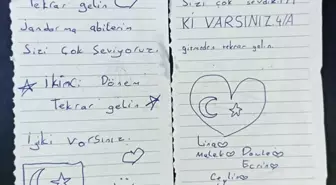 Tekrar gelin
Jandarma abilerim
Sizi Çok Seviyoruz
İkinci Dönem
Tekrar gelin
İyki Varsınız
Sizi çok sevdik
Kİ VARSINIZ 4/A
gizmeden tekrar gelin.
Lina
Melek Davle
Ecrin
Ceylin